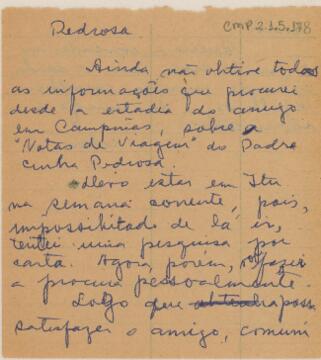 CMP 2.1.5.178
Pedrosa
Ainda não obtive todas
as informações que procurei
desde a estadia do amigo
em Campinas, sobre a
"Notas de Viagem" do Padre
Cunha Pedrosa.
Devo estar em Itu
na semana corrente, pois,
impossibilitado de lá ir,
tentei uma pesquisa por
carta. Agora, porém, fazer
a procura pessoalmente.
Logo que possa
satisfazer o amigo, comuni